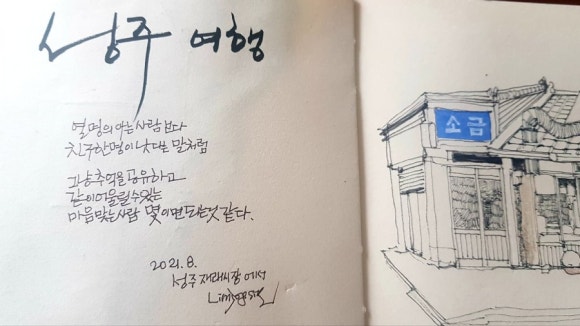 성주 여행
열명의 아는 사람보다
친구 한명이 낫다는 말처럼
그냥 추억을 공유하고
같이 어울릴 수 있는
마음 맞는 사람 몇이면 되는것 같다.
2021. 8.
성주 재래시장에서
소금